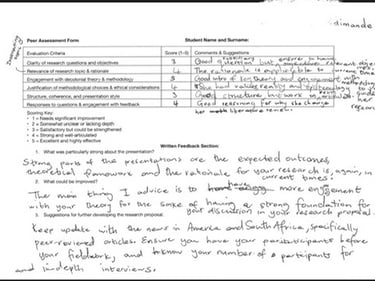 dimande
Peer Assessment Form
Student Name and Surname:
Evaluation Criteria
Score (1-5)
Comments & Suggestions
Clarity of research questions and objectives
3
Good question but
Relevance of research topic & rationale
4
The rationale is applicable to current
Engagement with decolonial theory & methodology
3
Good intro of key theory and
Justification of methodological choices & ethical considerations
4
She had
Structure, coherence, and presentation style
3
Good structure but work
Responses to questions & engagement with feedback
4
Good reasoning for why
her literature review.
Scoring Key:
1 = Needs significant improvement
2 = Somewhat unclear or lacking depth
3 = Satisfactory but could be strengthened
4 = Strong and well-articulated
5 = Excellent and highly effective
Written Feedback Section:
1. What was particularly strong about the presentation?
Strong parts of the presentations are the expected outcomes,
theoretical framework and the rationale for your research is, again, in
current times.
2. What could be improved?
The main thing I advise is to have more engagement
with your theory for the sake of having a strong foundation for
your discussion in your research proposal.
3. Suggestions for further developing the research proposal:
Keep update with the news in America and South Africa, specifically
peer-reviewed articles. Ensure you have your participants before
your fieldwork, and to know your number of participants for
and in-depth interviews.